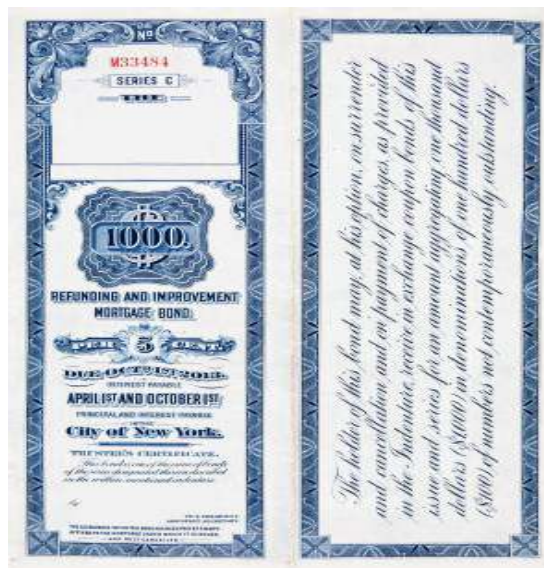 No
M33484
SERIES C
THE
1000.
REFUNDING AND IMPROVEMENT
MORTGAGE BOND.
PER 5 CENT.
DUE OCT. 1ST 2013.
INTEREST PAYABLE
APRIL 1ST AND OCTOBER 1ST.
PRINCIPAL AND INTEREST PAYABLE
IN THE
City of New York.
TRUSTEE'S CERTIFICATE.
This bond is one of the issue of bonds
of the series designated therein, described
in the within mentioned indenture.
by
The holder of this bond may, at his option, on surrender
and cancellation, and on payment of charges, as provided
in the Indenture, receive in exchange coupon bonds of this
issue and series for an amount aggregating one thousand
dollars $(1000) in denominations of one hundred dollars
$(100) of numbers not contemporaneously outstanding.